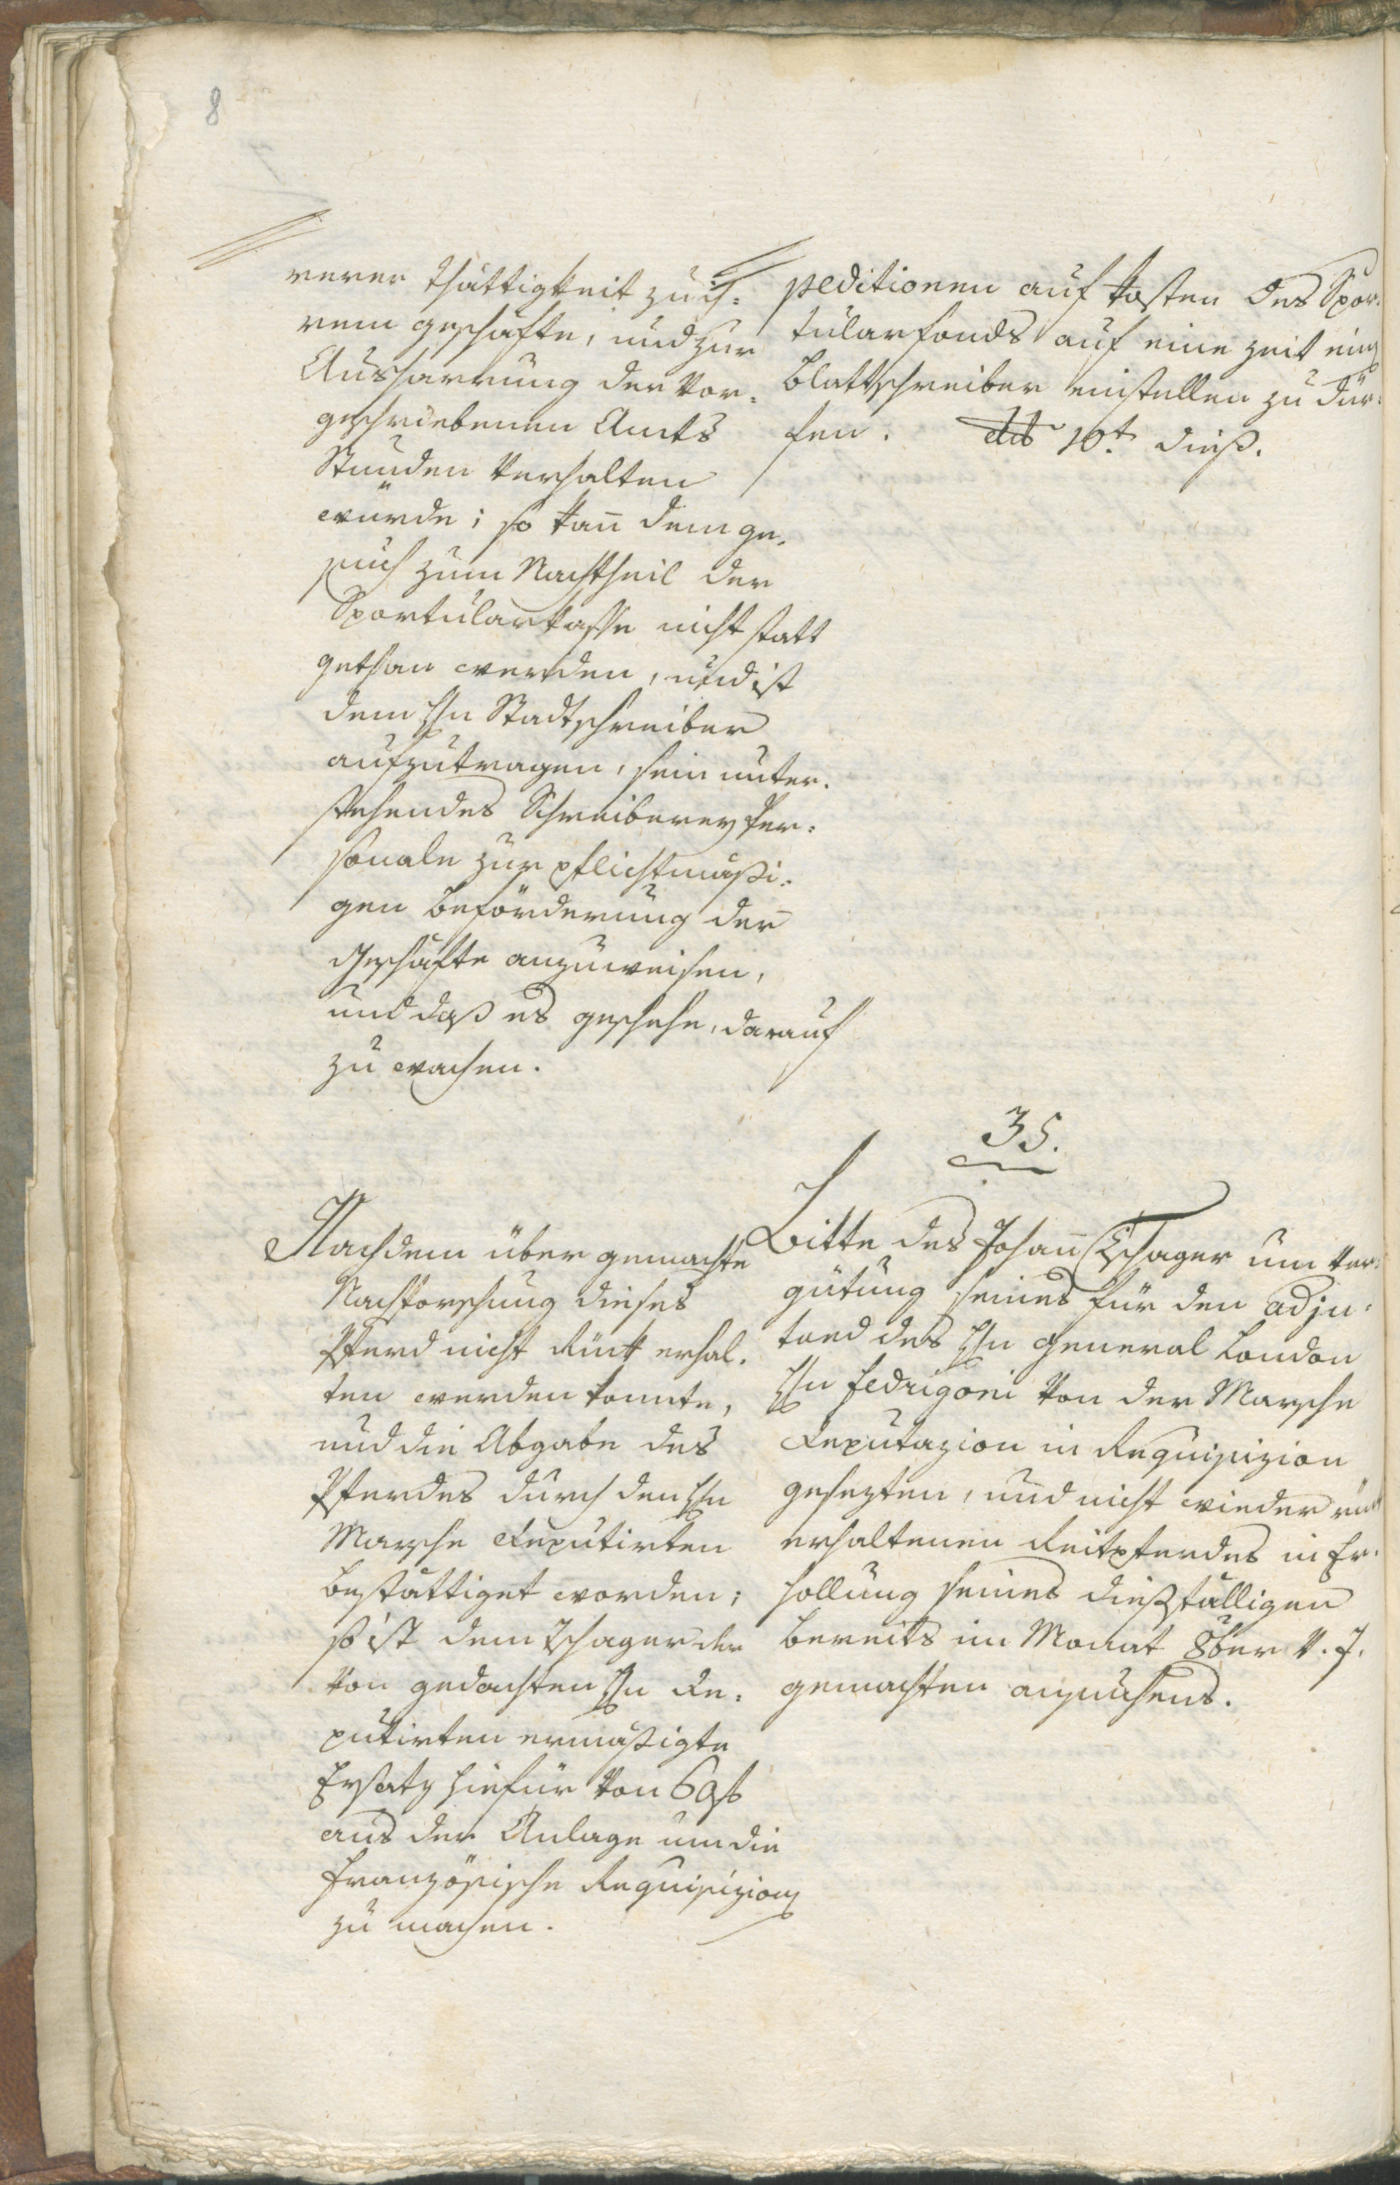 8
rerer Thättigkeit zu ih=
rem geschäfte, und zur
Ausharrung der vor=
geschriebenen Amts
Stunden verhalten
würde; so kan̄ dem ge=
such zum Nachtheil der
Sportularkasse nicht statt
gethan werden, und ist
dem Hn Stadtschreiber
aufzutragen, sein unter=
stehendes Schreiberey Per=
sonale zur pflichtmäßi=
gen beförderung der
Geschäfte anzuweisen,
und daß es geschehe, darauf
zu wachen.
peditionen auf kosten des Spor=
tularfonds auf eine zeit einen
blattschreiber einstellen zu dür=
fen. dtō 10t. dieß.
35.
Nachdem über gemachte
Nachforschung dieses
Pferd nicht Rükk erhal=
ten werden konnte,
und die Abgabe des
Pferdes durch den Hn
Marsche Deputirten
bestättiget worden;
so ist dem Tschager der
von gedachten Hn De=
putirten ermäßigte
Ersatz hiefür von 60 f
aus der Anlage um die
französische Requisizion
zu machen.
Bitte des Johan̄ Tschager um ver=
gütung seines für den Adju=
tand des Hn General Loudon
Hn Fedrigoni von der Marsche
Deputazion in Requisizion
gesezten, und nicht wieder rük
erhaltenen Reitpferdes in Er=
hollung seines dießfälligen
bereits im Monat 8ber v. J.
gemachten ansuchens.